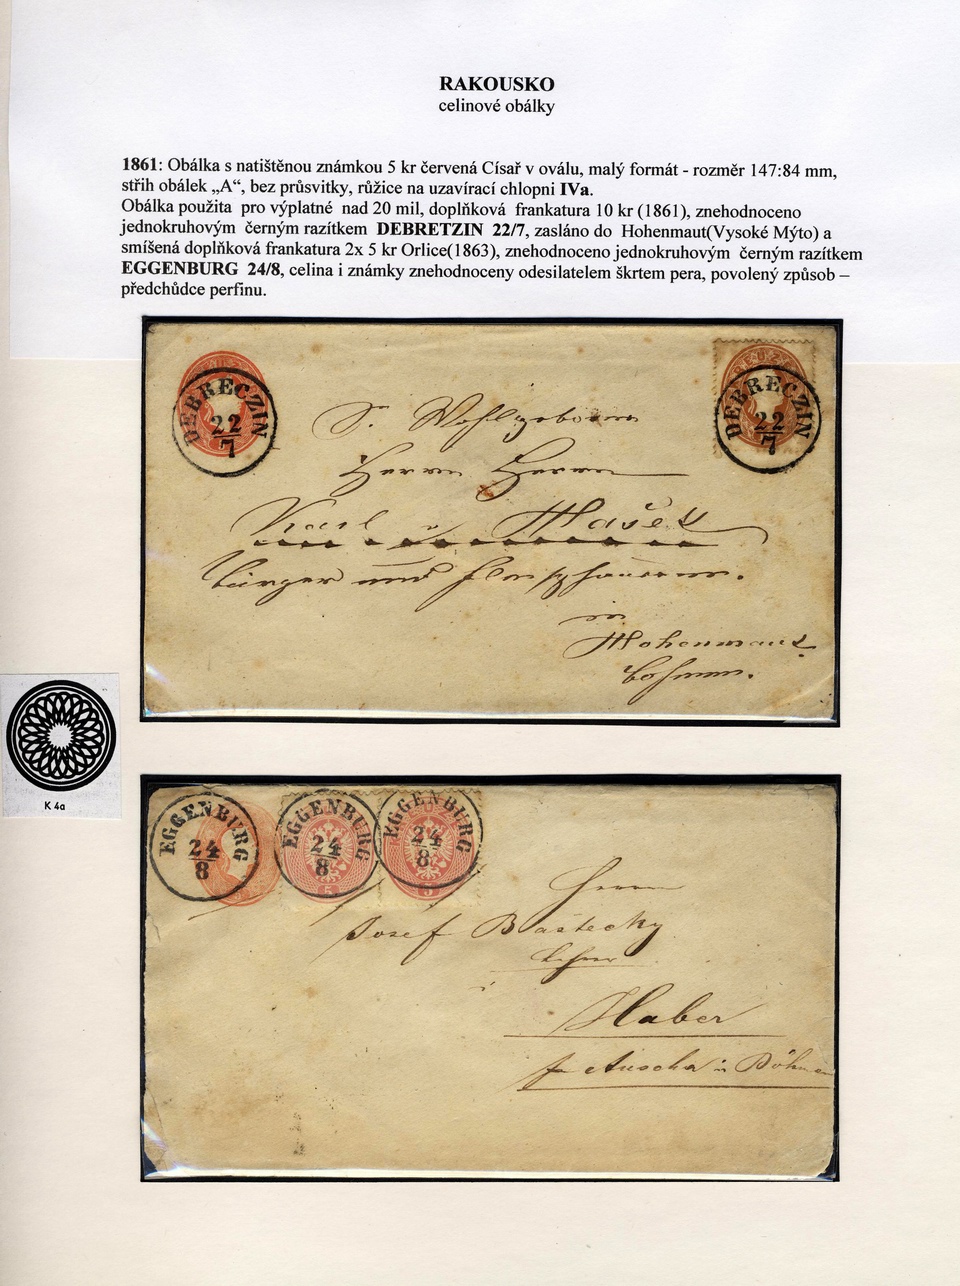 RAKOUSKO
celinové obálky
1861: Obálka s natištěnou známkou 5 kr červená Císař v oválu, malý formát - rozměr 147:84 mm,
střih obálek „A“, bez průsvitky, růžice na uzavírací chlopni IVa.
Obálka použita pro výplatné nad 20 mil, doplňková frankatura 10 kr (1861), znehodnoceno
jednokruhovým černým razítkem DEBRETZIN 22/7, zasláno do Hohenmaut(Vysoké Mýto) a
smíšená doplňková frankatura 2x 5 kr Orlice(1863), znehodnoceno jednokruhovým černým razítkem
EGGENBURG 24/8, celina i známky znehodnoceny odesilatelem škrtem pera, povolený způsob –
předchůdce perfinu.
DEBRECZIN
22
7
DEBRECZIN
22
7
S. Wohlgeboren
Herrn Herrn
Karl Mašek
Bürger und
in
Hohenmaut
Böhmen.
K 4a
EGGENBURG
24
8
EGGENBURG
24
8
EGGENBURG
24
8
5
5
Herrn
Josef Bastecky
Lehrer
Haber
Auscha in Böhmen